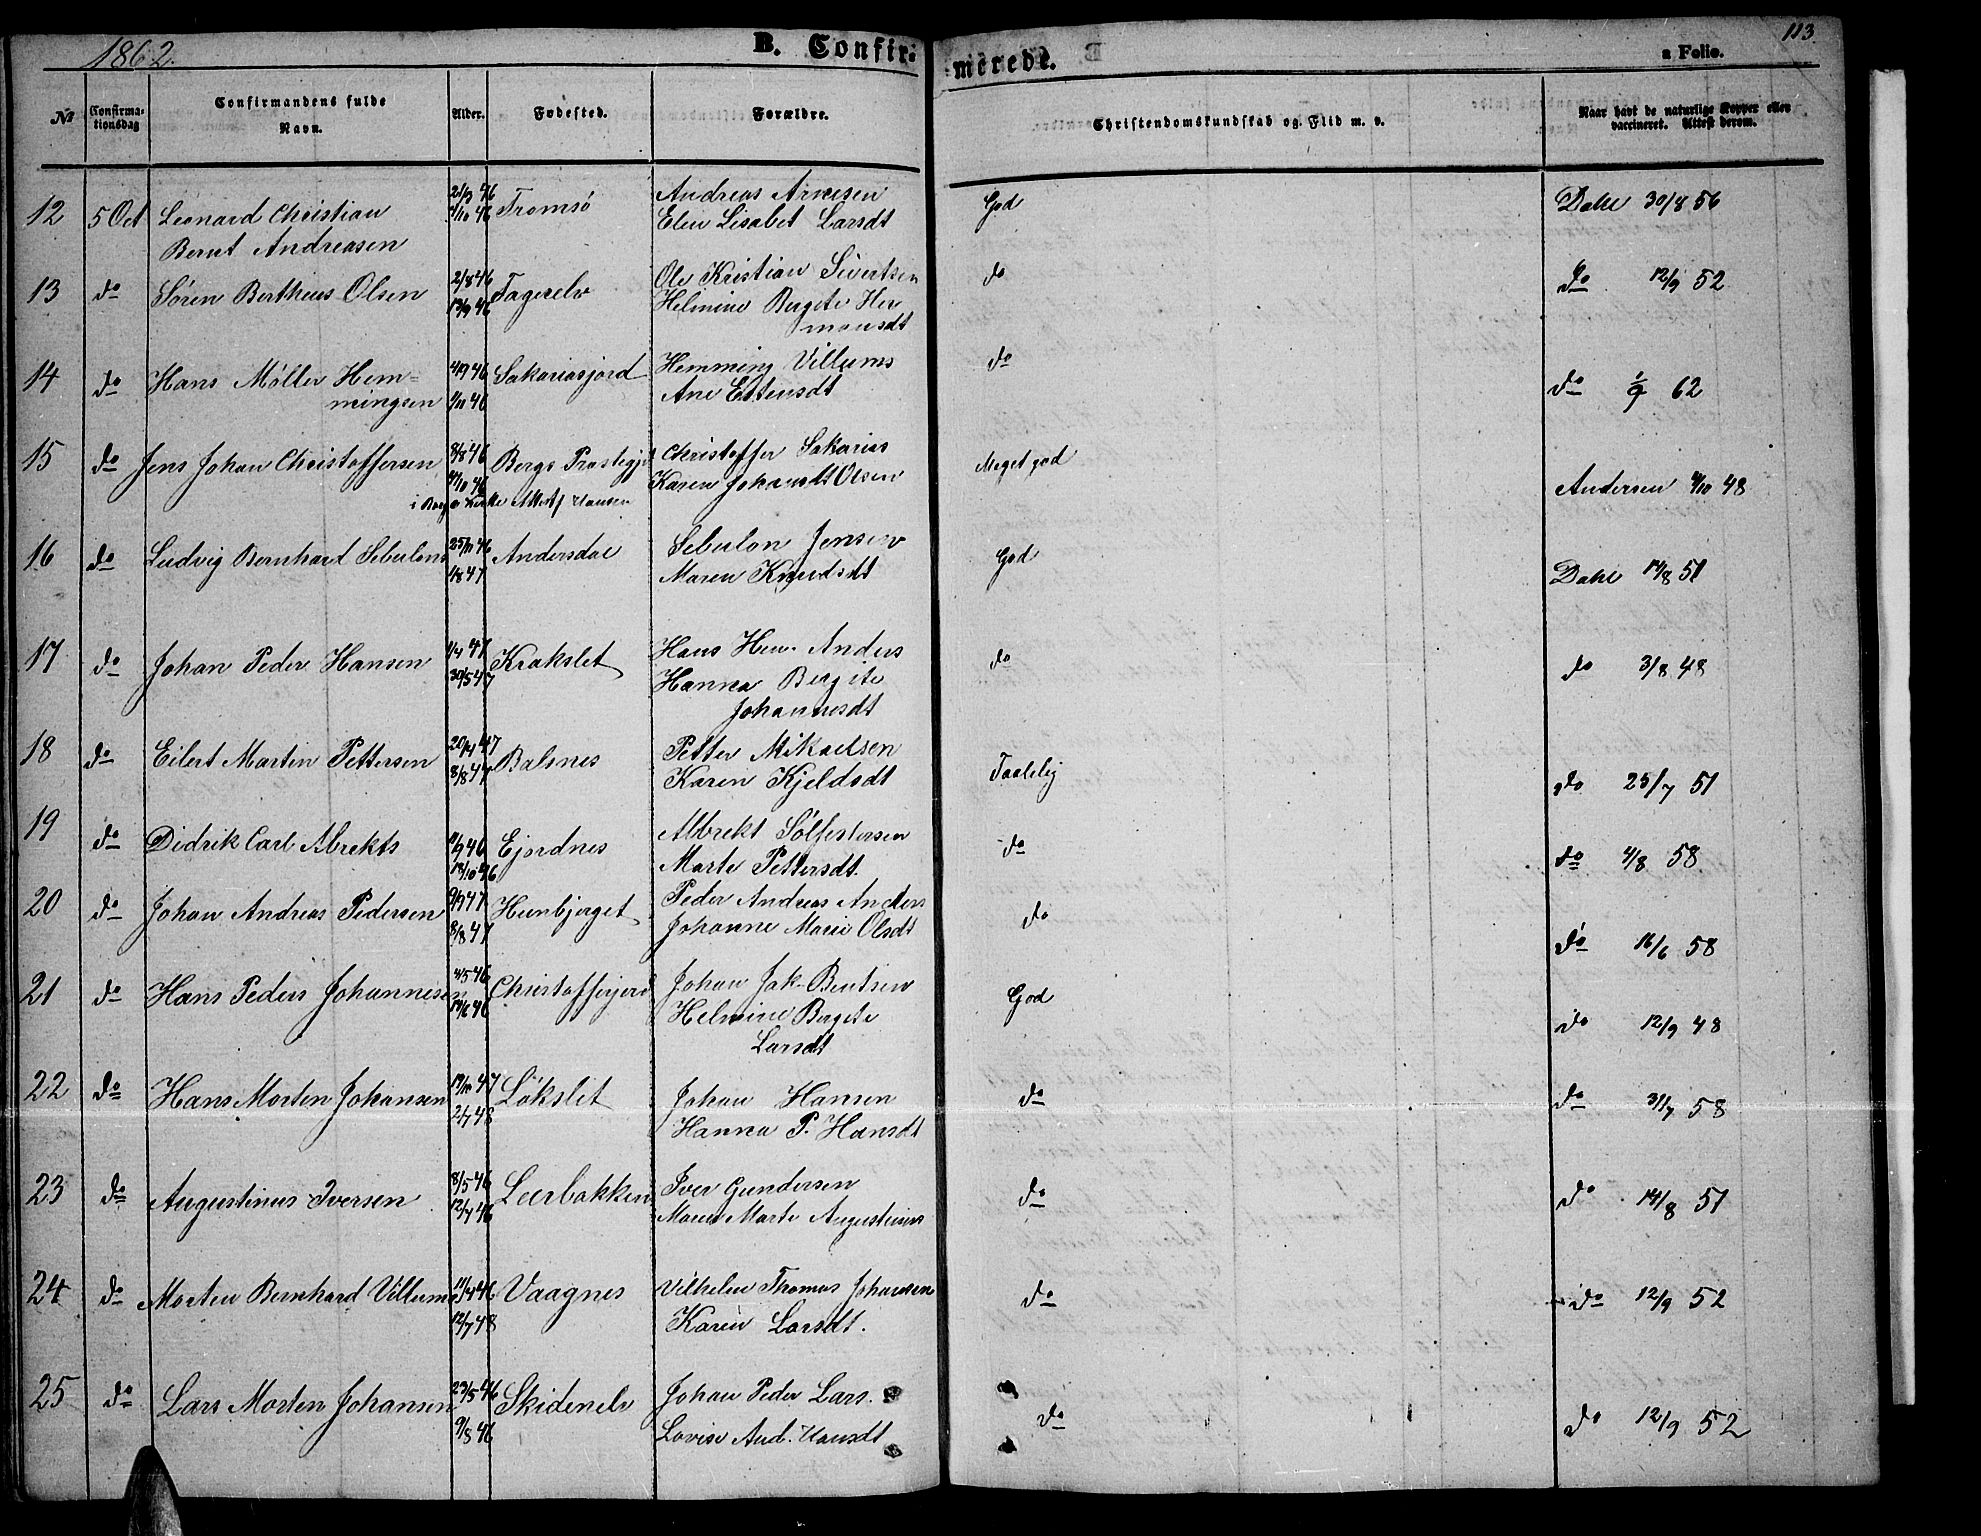 1862.
B. Confir-
merede.
113.
a Folio.
No
Confirma-
tionsdag
Confirmandens fulde
Navn.
Alder.
Fødested.
Forældre.
Christendomskundskab og Flid m. v.
Naar havt de naturlige Kopper eller
vaccineret. Attest derom.
12 5 Oct Leonard Christian
Bernt Andreasen
21/3 46
4/10 46
Tromsø
Andreas Arnesen
Elen Lisabet Larsdt
God
Dahl 30/8 56
13 do Søren Bertheus Olsen
2/8 46
13/9 46
Tagerelv
Ole Kristian Sivertsen
Helmine Bergete Her
mansdt
do
do 12/9 52
14 do Hans Møller Hem-
mingsen
4/9 46
1/11 46
Sakariasjord
Hemming Villums
Ane Ettensdt
do
do 1/9 62
15 do Jens Johan Christoffersen
8/8 46
4/10 46
Bergs Præstegjd
Christoffer Sakarias
Karen Johansdt Olsen
Meget god
Andersen 4/10 48
16 do Ludvig Bernhard Sebulons
25/11 46
1/8 47
Andersdal
Sebulon Jensen
Maren Knudsdt
God
Dahl 14/8 51
17 do Johan Peder Hansen
1/4 47
30/5 47
Krakslet
Hans Hen. Anders
Hanna Bergite
Johannesdt
do
do 3/8 48
18 do Eilert Martin Pettersen
20/4 47
8/8 47
Balsnes
Petter Mikaelsen
Karen Kjeldsdt
Taalelig
do 25/7 51
19 do Didrik Carl Abrekts
Ejordnes
Albrekt Sølfestersen
Marte Pettersdt.
do
do 4/8 58
20 do Johan Andreas Pedersen
8/8 47
Hunbjerget
Peder Andreas Anders
Johanne Marie Olsdt
do
do 16/6 58
21 do Hans Peders Johannesen
4/5 46
14/6 46
Christofferjord
Johan Jak. Bentsen
Helmine Bergete
Larsdt
God
do 12/9 48
22 do Hans Morten Johansen
19/10 47
2/7 48
Løkslet
Johan Hansen
Hanna P. Hansdt
do
do 31/7 58
23 do Augustinus Iversen
8/5 46
12/7 46
Leerbakken
Iver Gundersen
Maren Marte Augustinus
do
do 14/8 51
24 do Morten Bernhard Villums
12/7 48
Vaagnes
Vilhelm Thomas Johansen
Karen Larsdt.
do
do 12/9 52
25 do Lars Morten Johansen
23/5 46
9/8 46
Skidenelv
Johan Peder Lars.
Lovise And. Hansdt
do
do 12/9 52